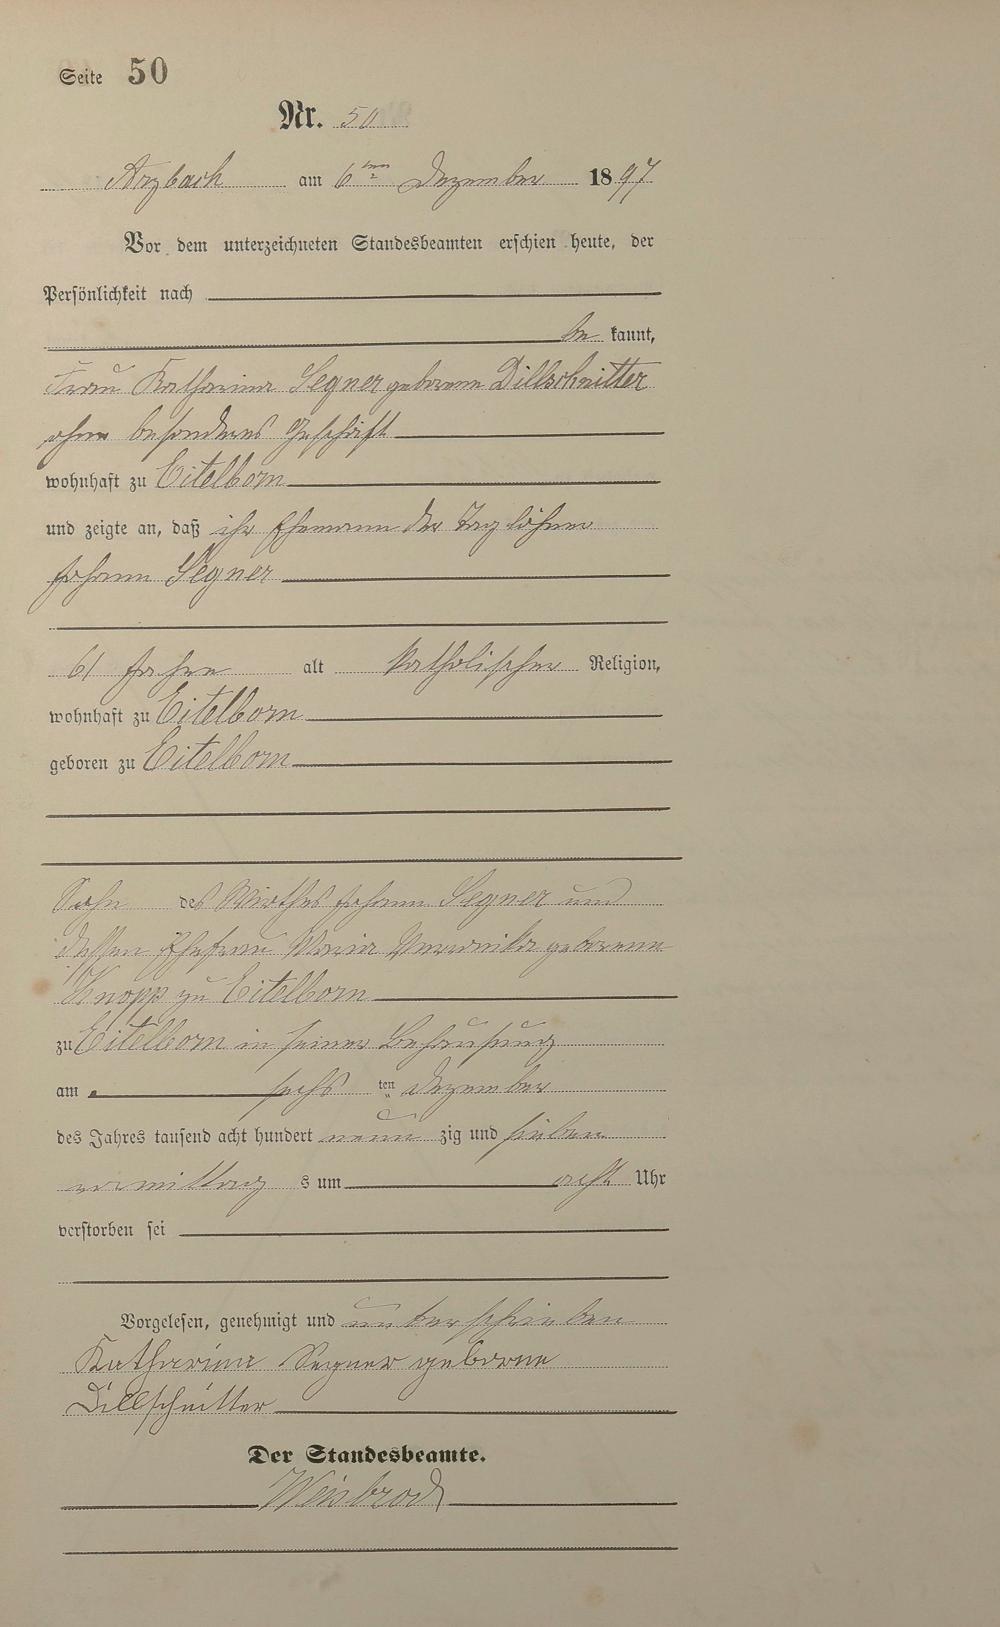 Seite 50
Nr. 50
Arzbach am 6ten Dezember 1897
Vor dem unterzeichneten Standesbeamten erschien heute, der
Persönlichkeit nach
be kannt,
Frau Katharina Segner geborene Dillschnitter
ohne besonderes Geschäft
wohnhaft zu Eitelborn
und zeigte an, daß ihr Ehemann der Taglöhner
Johann Segner
61 Jahre alt katholischer Religion,
wohnhaft zu Eitelborn
geboren zu Eitelborn
Sohn des Wirthes Johann Segner und
dessen Ehefrau Maria Veronika geborene
Knopp zu Eitelborn
zu Eitelborn in seiner Behausung
am sechs ten Dezember
des Jahres tausend acht hundert neun zig und sieben
vormittag s um acht Uhr
verstorben sei
Vorgelesen, genehmigt und unterschrieben
Katharina Segner geborne
Dillschnitter
Der Standesbeamte.
Weisbrod